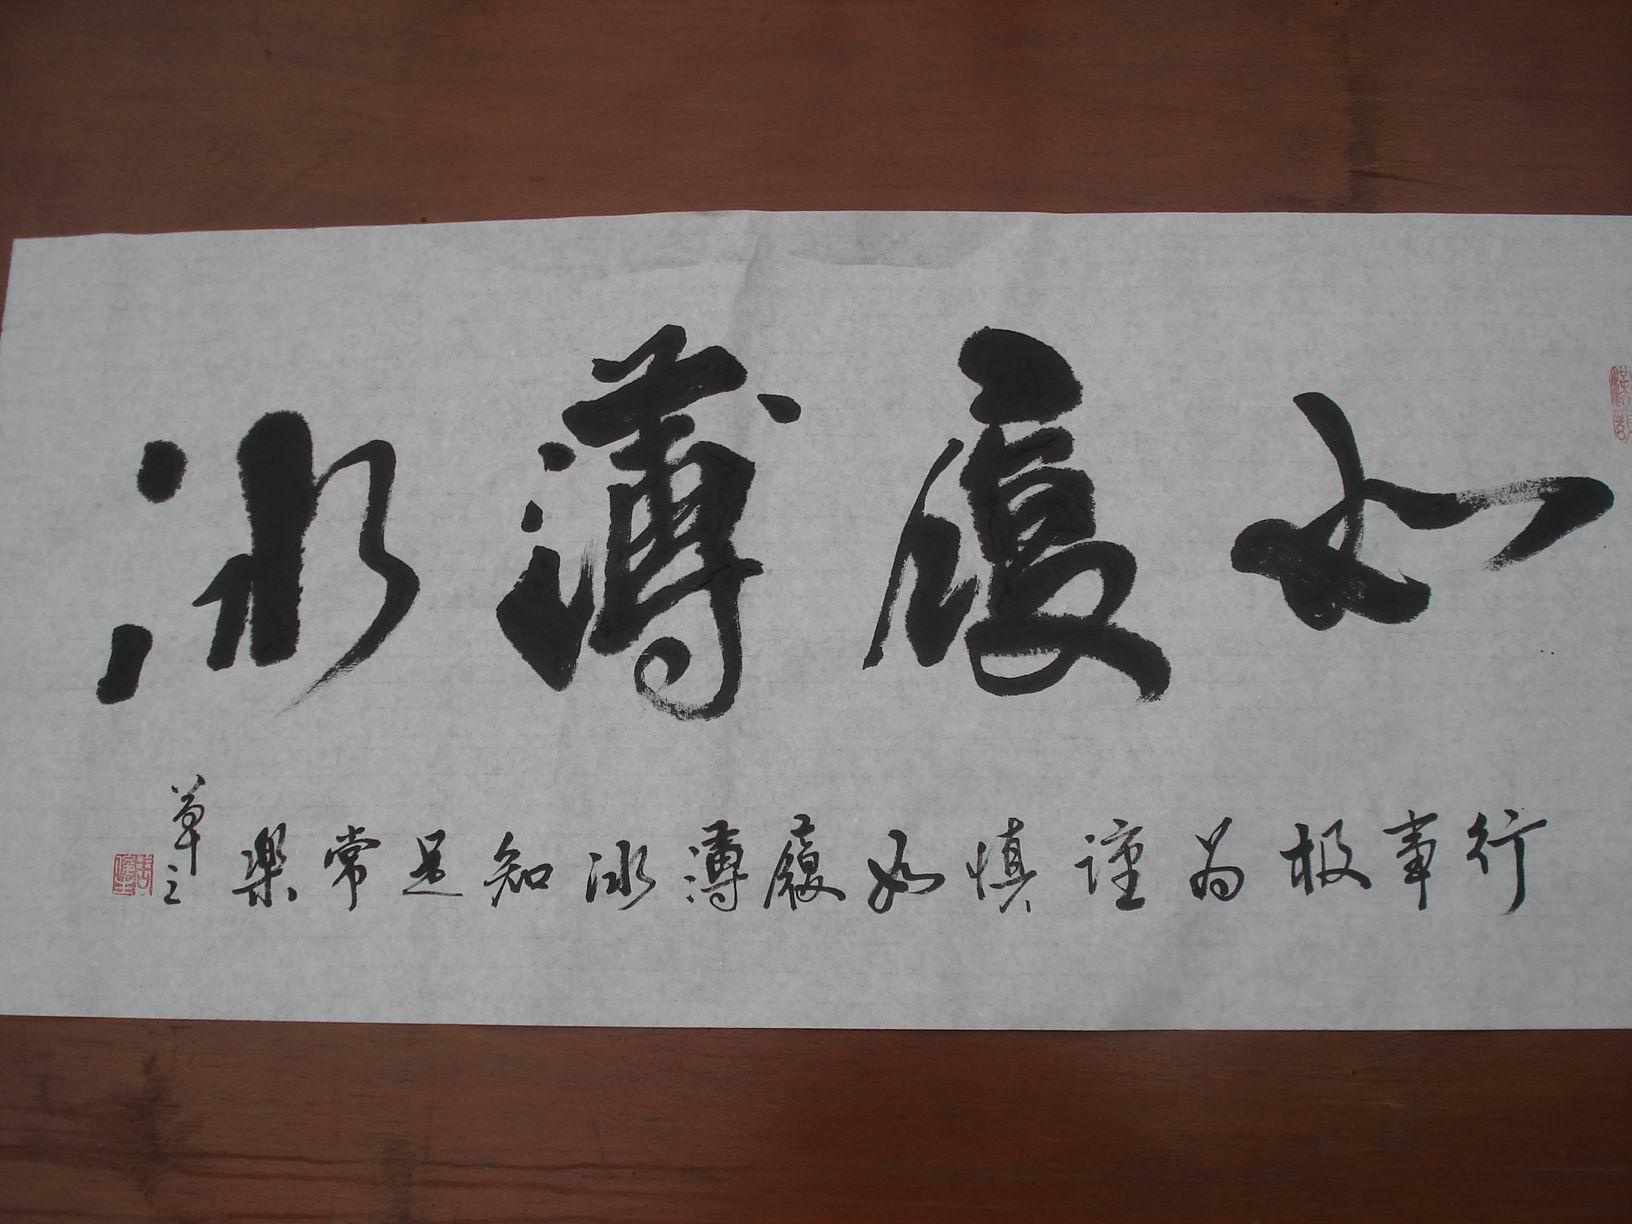 如履薄冰
行事极为谨慎如履薄冰知足常樂
草之